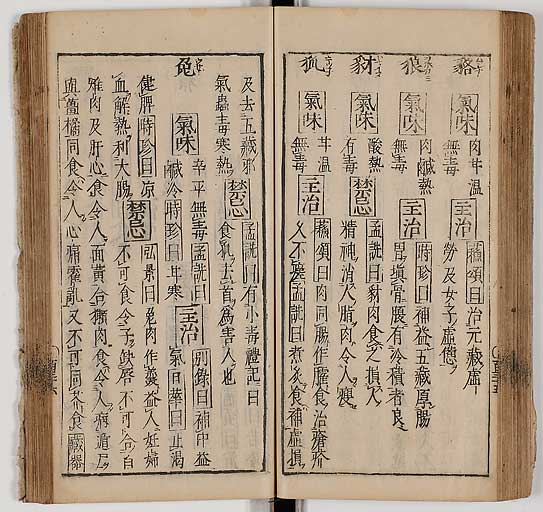 貉
氣味 肉甘溫無毒 主治 蘇頌曰治元藏虛勞及女子虛憊
狼
氣味 肉鹹熱無毒 主治 時珍曰補益五藏厚腸胃塡骨髓腹有冷積者良
豺
氣味 酸熱有毒 禁忌 孟詵曰豺肉食之損人精神消人脂肉令人瘦
狐
氣味 甘溫無毒 主治 蘇頌曰肉同腸作臛食治瘡疥久不瘥孟詵曰煮炙食補虛損
及去五藏邪氣蟲毒寒熱 禁忌 孟詵曰有小毒禮記曰食狐去首爲害人也
兔
氣味 辛平無毒孟詵曰鹹冷時珍曰甘寒 主治 別錄曰補中益氣日華曰止渴
健脾時珍曰涼血解熱利大腸 禁忌 弘景曰兔肉作羹益人妊婦不可食令子缺唇不可合白
雉肉及肝心食令人面黃合獺肉食令人病遁尸
與薑橘同食令人心痛霍亂又不可同芥食藏器